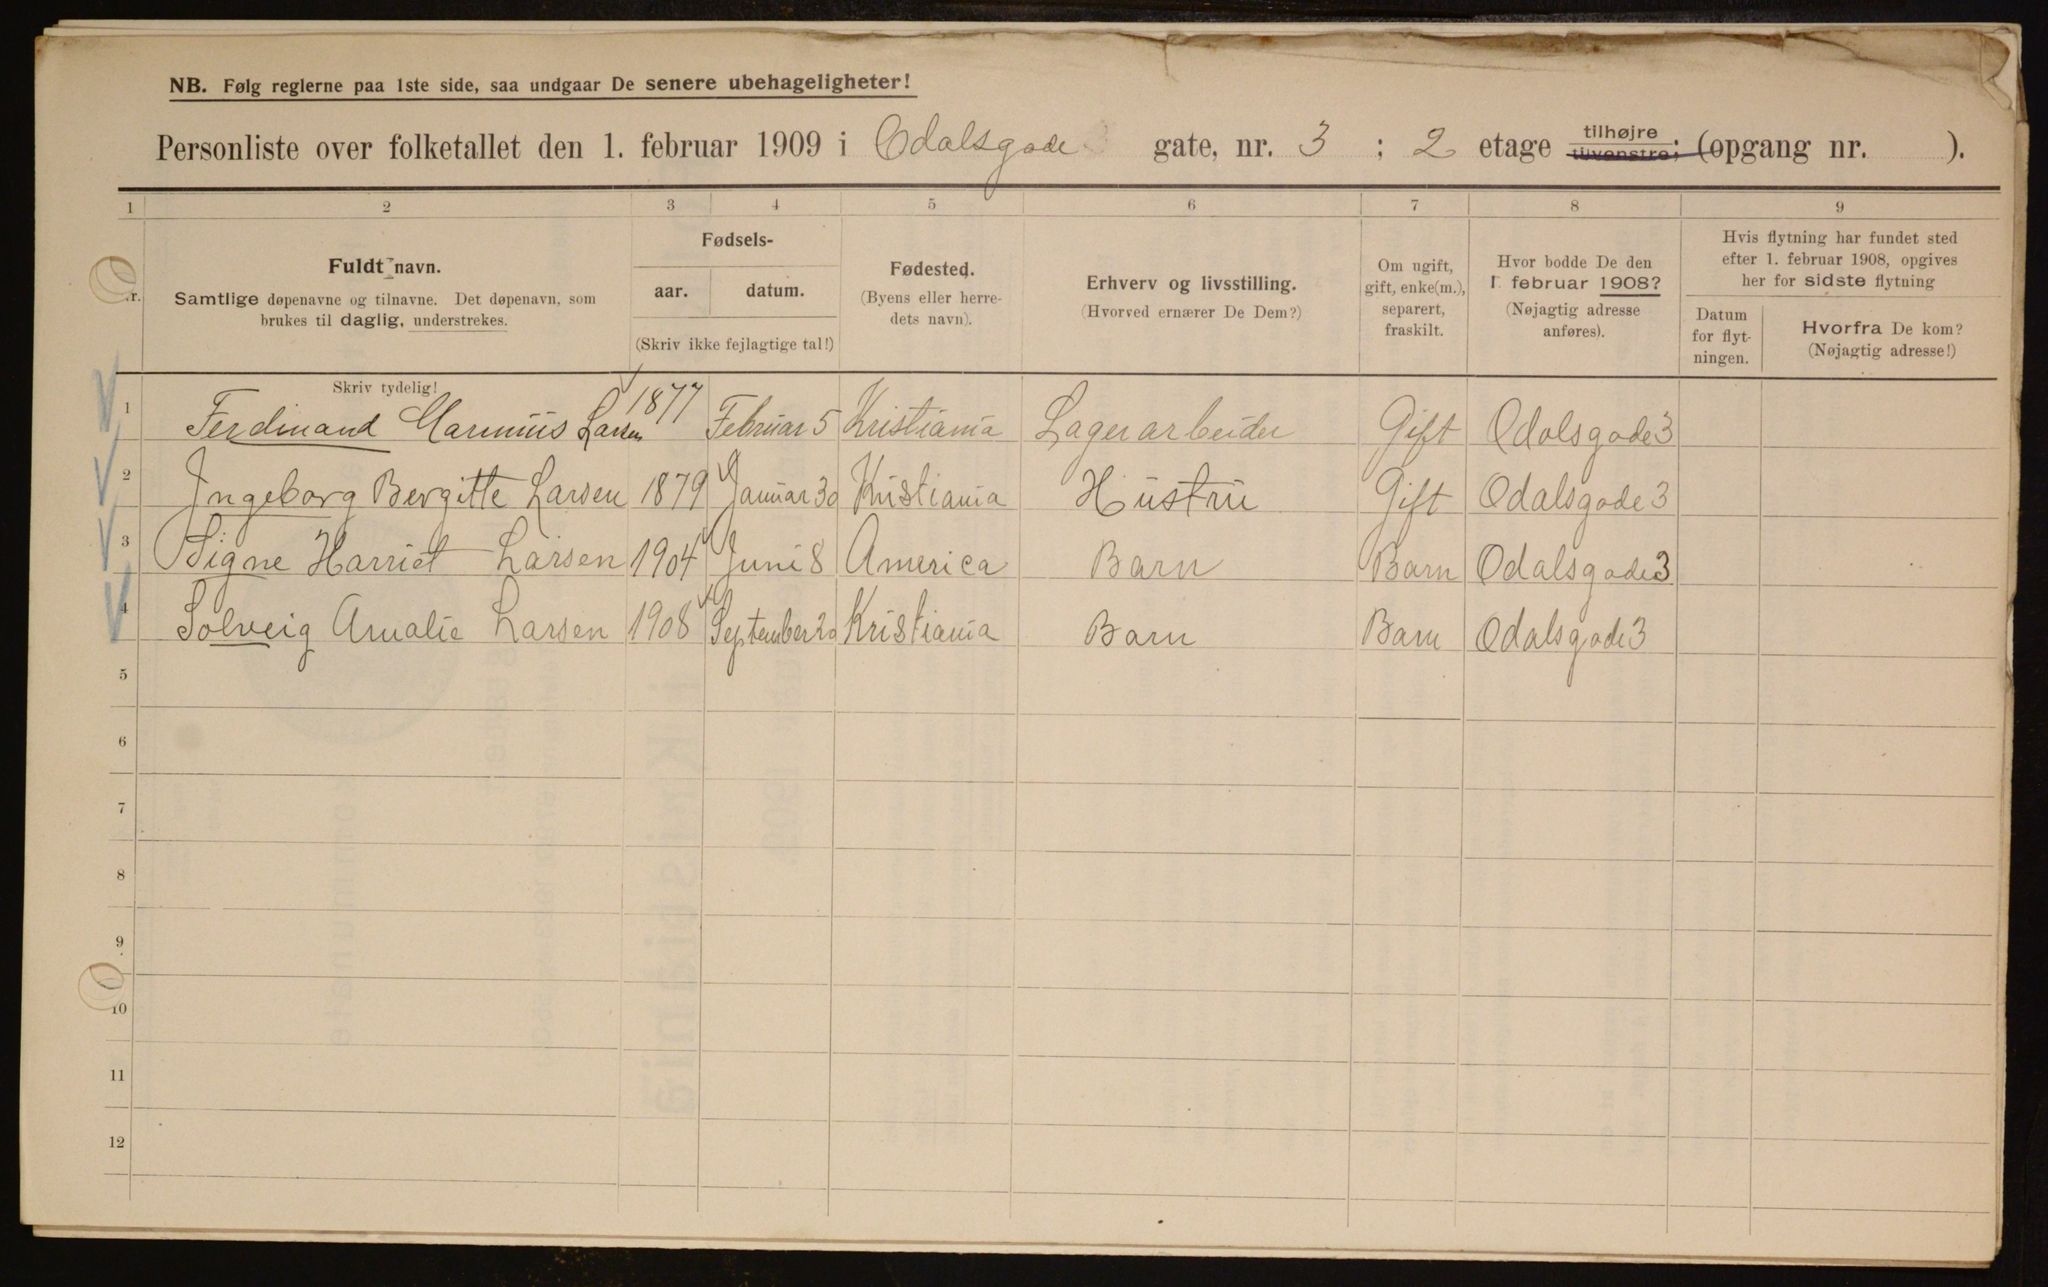 NB. Følg reglerne paa 1ste side, saa undgaar De senere ubehageligheter!
Personliste over folketallet den 1. februar 1909 i Odalsgade gate, nr. 3 ; 2 etage tilhøjre tilvenstre; (opgang nr. ).
1 2 3 4 5 6 7 8 9
Fuldt navn.
Samtlige døpenavne og tilnavne. Det døpenavn, som
brukes til daglig, understrekes.
Fødsels-
aar. datum.
(Skriv ikke fejlagtige tal!)
Fødested.
(Byens eller herre-
dets navn).
Erhverv og livsstilling.
(Hvorved ernærer De Dem?)
Om ugift,
gift, enke(m.),
separert,
fraskilt.
Hvor bodde De den
1 februar 1908?
(Nøjagtig adresse
anføres).
Hvis flytning har fundet sted
efter 1. februar 1908, opgives
her for sidste flytning
Datum
for flyt-
ningen.
Hvorfra De kom?
(Nøjagtig adresse!)
Skriv tydelig!
1 Ferdinand Marinius Larsen 1877 Februar 5 Kristiania Lagerarbeider Gift Odalsgade 3
2 Ingeborg Bergitte Larsen 1879 Januar 30 Kristiania Hustru Gift Odalsgade 3
3 Signe Harriet Larsen 1904 Juni 8 America Barn Barn Odalsgade 3
4 Solveig Amalie Larsen 1908 September 20 Kristiania Barn Barn Odalsgade 3
5
6
7
8
9
10
11
12